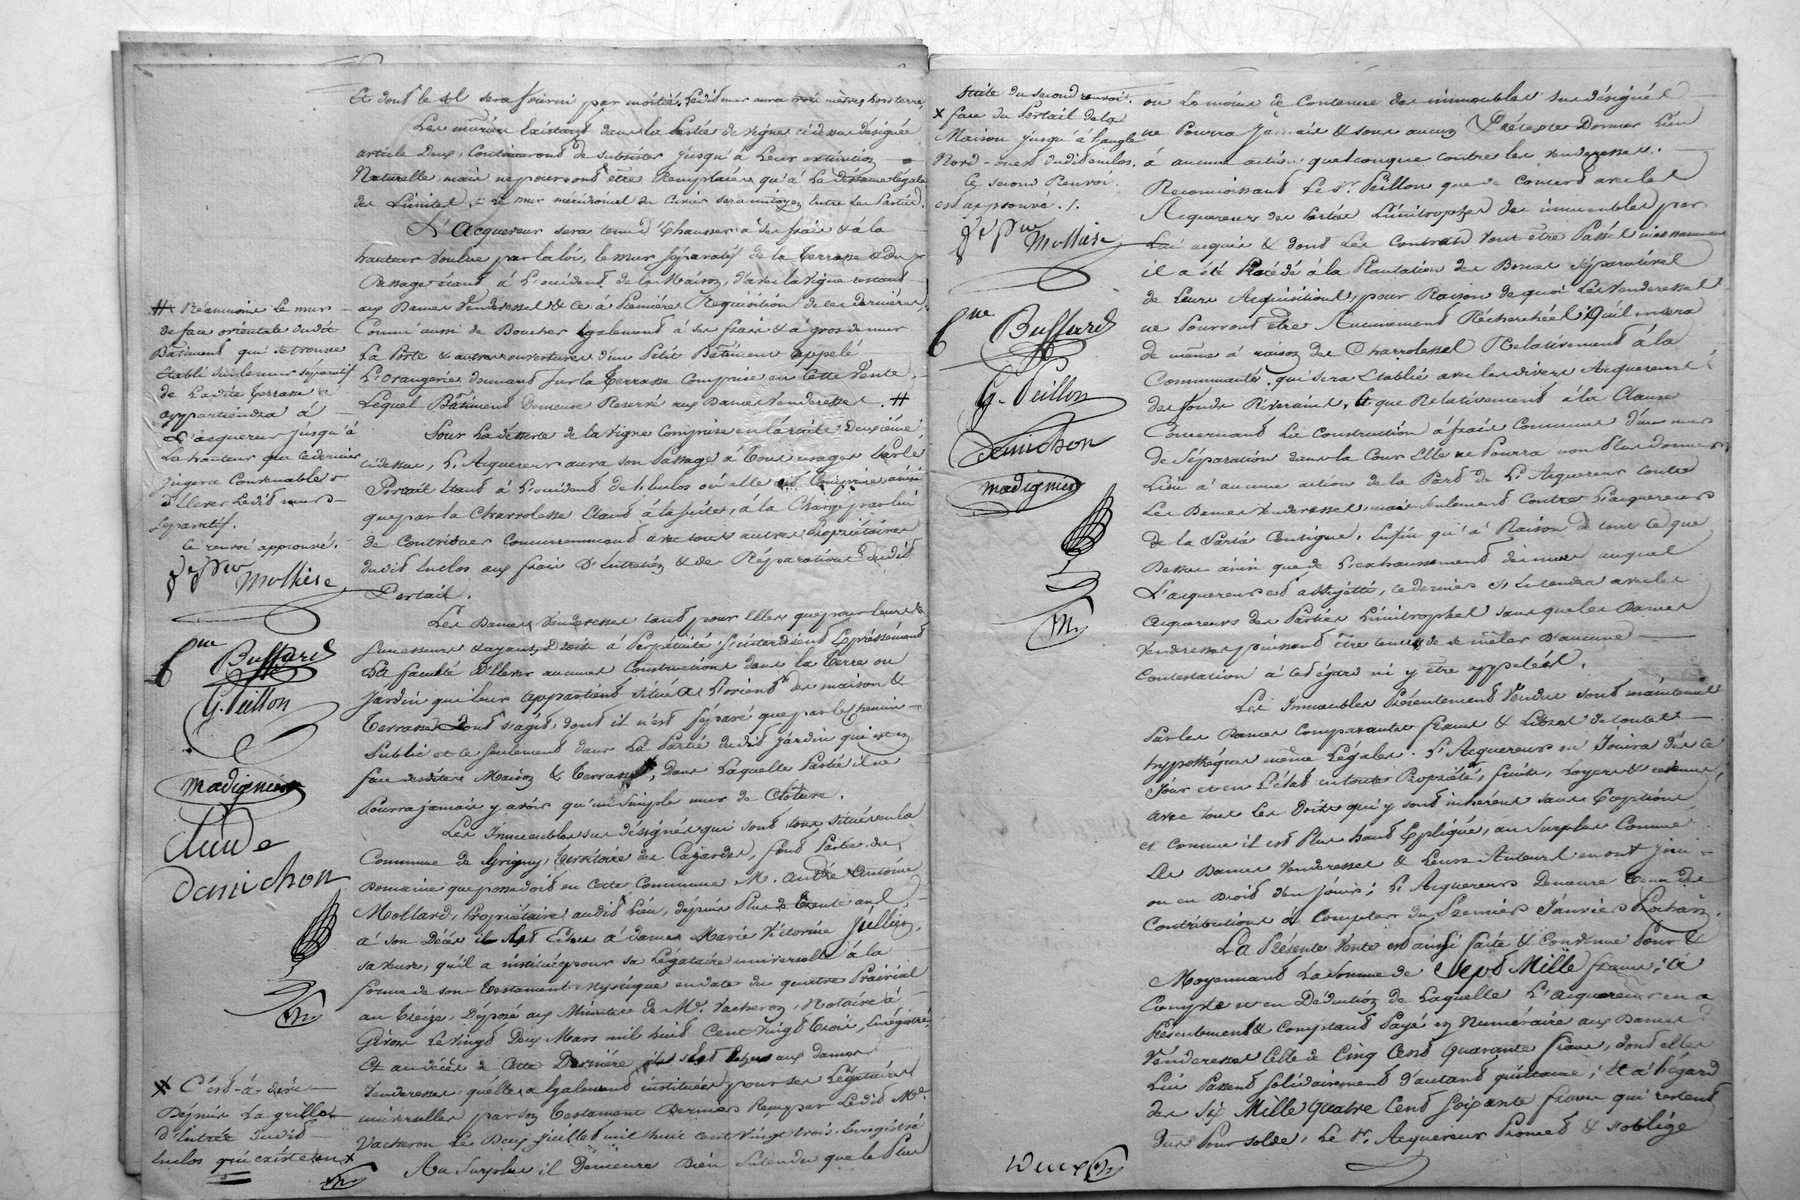 Et dont le sol sera fourni par moitié. Ledit mur aura trois mètres hors terre,
Les mûriers existant dans la Partie de vigne cédée désignée
article Deux, Continueront de subsister jusqu'à Leur extinction
Naturelle, mais ne pourront être Remplacés qu'à La distance légale
des Limites. Le mur méridional de sera mitoyen Entre Les Parties.
L'Acquereur sera tenu d'Exhausser à Ses frais & à la
hauteur voulue par la loi, le mur séparatif de la Terrasse & du
Passage étant à L'occident de la Maison, d'avec la Vigne restant
aux Dames Venderesses & ce à Première Réquisition de ces dernières,
Comme aussi de Boucher Egalement à ses frais & à gros de mur
La Porte & autres ouvertures d'un Petit Bâtiment appelé
L'Orangerie donnant sur la Terrasse comprise en Cette Vente,
Lequel Bâtiment Demeure Reservé aux Dames Venderesses. #
Pour La desserte de la Vigne Comprise en l'article Deuxième
cidessus, L'Acquereur aura son Passage à tous usages Par le
Portail Etant à L'occident de l'Enclos où elle est Comprise ainsi
que par la Charrolesse Etant à la suite, à la Charge par lui
de Contribuer Concurremment avec tous autres Propriétaires
dudit Enclos aux frais D'Entretien & de Réparations dudit
Portail.
Les Dames Venderesses tant pour Elles que pour leurs
Successeurs & ayant Droit à Perpétuité S'interdisent Expressément
La faculté D'Elever aucunes Constructions dans la Terre ou
Jardin qui leur appartient situé à L'orient des maison &
Terrasse dont s'agit, dont il n'est séparé que par le Chemin
Public et ce seulement dans La Partie dudit Jardin qui est en
face desdites Maison & Terrasse, Dans Laquelle Partie il ne
Pourra jamais y avoir qu'un Simple mur de Clôture.
Les Immeubles sus désignés qui sont tous situés en la
Commune de Grigny, Territoire des Cazardes, font Partie du
Domaine que possedoit en Cette Commune M. André Antoine
Mollard, Propriétaire audit Lieu, depuis Plus de Trente ans,
à son Décès il est Echu à dame Marie Victorine Jullien,
sa veuve, qu'il a instituée pour sa Légataire universelle à la
forme de son Testament Mystique en date du quatre Prairial
an Treize, Déposé aux Minutes de Me. Vacheron, Notaire à
Givors Le vingt Deux Mars mil huit Cent vingt Trois, Enregistré.
Et au décès de Cette Dernière, ils sont Echus aux dames
Venderesses, qu'elle a Egalement instituées pour ses Légataires
universelles par son Testament Dernier Reçu par Ledit Me.
Vacheron Le Deux Juillet mil huit cent vingt trois, Enregistré
Au Surplus il Demeure Bien Entendu que le Plus
# Néanmoins Le mur
de face orientale dudit
Bâtiment qui se trouve
établi sur le mur séparatif
de Ladite Terrasse
appartiendra à
L'acquereur jusqu'à
La hauteur que ce dernier
jugera Convenable
D'Elever Ledit mur
Séparatif.
Ce renvoi approuvé.
Mollière
Buffard
G. Peillon
Madignier
Claude
Danichon
X C'est-à-dire
Depuis La grille
D'Entrée dudit
Enclos qui existe en X
Suite du Second renvoi.
X face du Portail de la
Maison jusqu'à l'angle
Nord-ouest dudit enclos.
Ce second Renvoi
est approuvé.
Mollière
Buffard
G. Peillon
Danichon
Madignier
ou Le moins de Contenue des immeubles sus désignés
ne Pourra Jamais & sous aucun Prétexte Donner Lieu
à aucune action quelconque contre les venderesses.
Reconnoissant Le Sr. Peillon que de Concert avec les
Acquereurs des Parties Limitrophes des immeubles par
Lui acquis & dont Les Contrats vont être Passés incessamment
il a été Procédé à la Plantation des Bornes séparatives
de Leurs Acquisitions, pour Raison de quoi Les Venderesses
ne Pourront être Aucunement Recherchées. Qu'il en sera
de même à raison des Charrolesses Relativement à la
Communauté qui sera Etablie avec les divers Acquereurs
des fonds Riverains, & que Relativement à la Clause
Concernant La Construction à frais Communs d'un mur
de Séparation dans la Cour Elle ne Pourra non Plus donner
Lieu à aucune action de la Part de L'Acquereur Contre
Les Dames Venderesses, mais seulement Contre L'acquereur
de la Partie Contigue. Enfin qu'à Raison de tout Ce que
Dessus ainsi que de L'exhaussement du mur auquel
L'acquereur est assujetti, ce dernier s'Entendra avec les
Acquereurs des Parties Limitrophes sans que les Dames
Venderesses puissent être tenues de se mêler D'aucune
Contestation à cet égard ni y être appelées.
Les Immeubles Présentement Vendus sont maintenus
Par les Dames Comparantes francs & Libres de toutes
hypothèques même Légales. L'Acquereur en Jouira dès ce
Jour et en L'état en toute Propriété, fruits, Loyers & revenus,
avec tous Les Droits qui y sont inhérens sans Exception
et comme il est Plus haut Expliqué, au Surplus Comme
Les Dames Venderesses & Leurs Auteurs en ont joui
ou eu Droit d'en Jouir; L'Acquereur Demeure Tenu des
Contributions à Compter du Premier Janvier Prochain.
La Présente Vente est ainsi faite & Convenue Pour &
Moyennant La Somme de Sept Mille francs; à
Compte et en Déduction de Laquelle L'Acquereur en a
Présentement & Comptant Payé en Numéraire aux Dames
Venderesses Celle de Cinq Cent Quarante francs, dont elles
Lui Passent solidairement d'autant quittance; & à l'égard
des Six Mille Quatre Cent Soixante francs qui restent
Dus Pour solde, Le Sr. Acquereur Promet & s'oblige
Deux